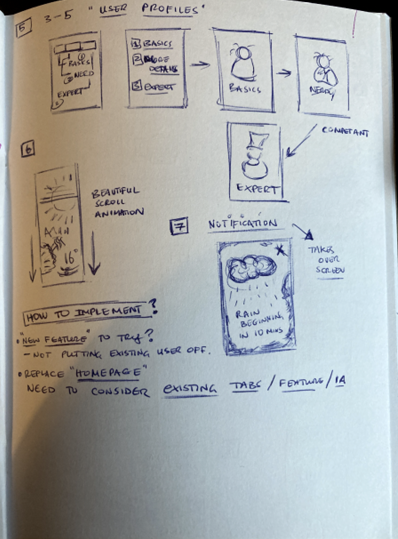 5 3-5 "USER PROFILES"
BASICS
NEED
EXPERT
1 BASICS
2 MORE
DETAILS
3 EXPERT
BASICS
NERDS
COMPETANT
EXPERT
6
BEAUTIFUL
SCROLL
ANIMATION
16°
7 NOTIFICATION
TAKES
OVER
SCREEN
X
RAIN
BEGINNING
IN 10 MINS
HOW TO IMPLEMENT?
• "NEW FEATURE" TO TRY?
- NOT PUTTING EXISTING USER OFF.
• REPLACE "HOMEPAGE"
NEED TO CONSIDER EXISTING TABS / FEATURE / IA